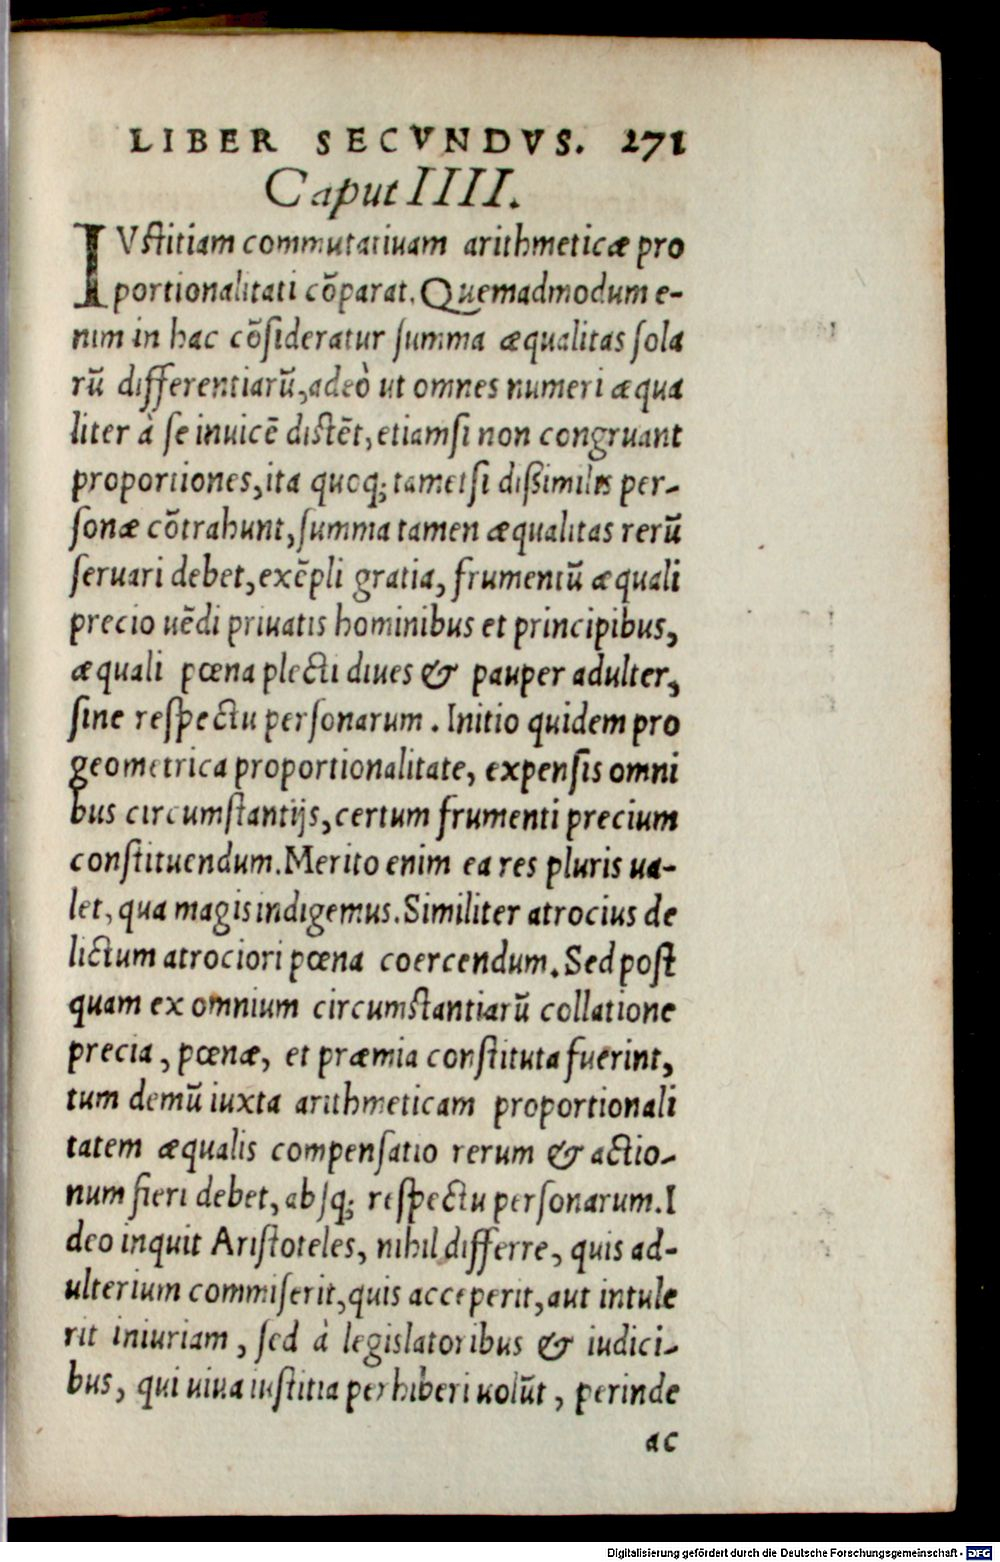 LIBER SECVNDVS. 271
Caput IIII.
IVſtitiam commutatiuam arithmeticæ pro
portionalitati cõparat. Quemadmodum e-
nim in hac cõſideratur ſumma æqualitas ſola
rũ differentiarũ, adeò ut omnes numeri æqua
liter à ſe inuicẽ diſtẽt, etiamſi non congruant
proportiones, ita quoq; tametſi dißimiles per-
ſonæ cõtrahunt, ſumma tamen æqualitas rerũ
ſeruari debet, exẽpli gratia, frumentũ æquali
precio uẽdi priuatis hominibus et principibus,
æquali pœna plecti diues & pauper adulter,
ſine reſpectu perſonarum. Initio quidem pro
geometrica proportionalitate, expenſis omni
bus circumſtantijs, certum frumenti precium
conſtituendum. Merito enim ea res pluris ua-
let, qua magis indigemus. Similiter atrocius de
lictum atrociori pœna coercendum. Sed poſt
quam ex omnium circumſtantiarũ collatione
precia, pœnæ, et præmia conſtituta fuerint,
tum demũ iuxta arithmeticam proportionali
tatem æqualis compenſatio rerum & actio-
num fieri debet, abſq; reſpectu perſonarum. I
deo inquit Ariſtoteles, nihil differre, quis ad-
ulterium commiſerit, quis acceperit, aut intule
rit iniuriam, ſed à legislatoribus & iudici-
bus, qui uiua iuſtitia perhiberi uolũt, perinde
ac
Digitalisierung gefördert durch die Deutsche Forschungsgemeinschaft - DFG